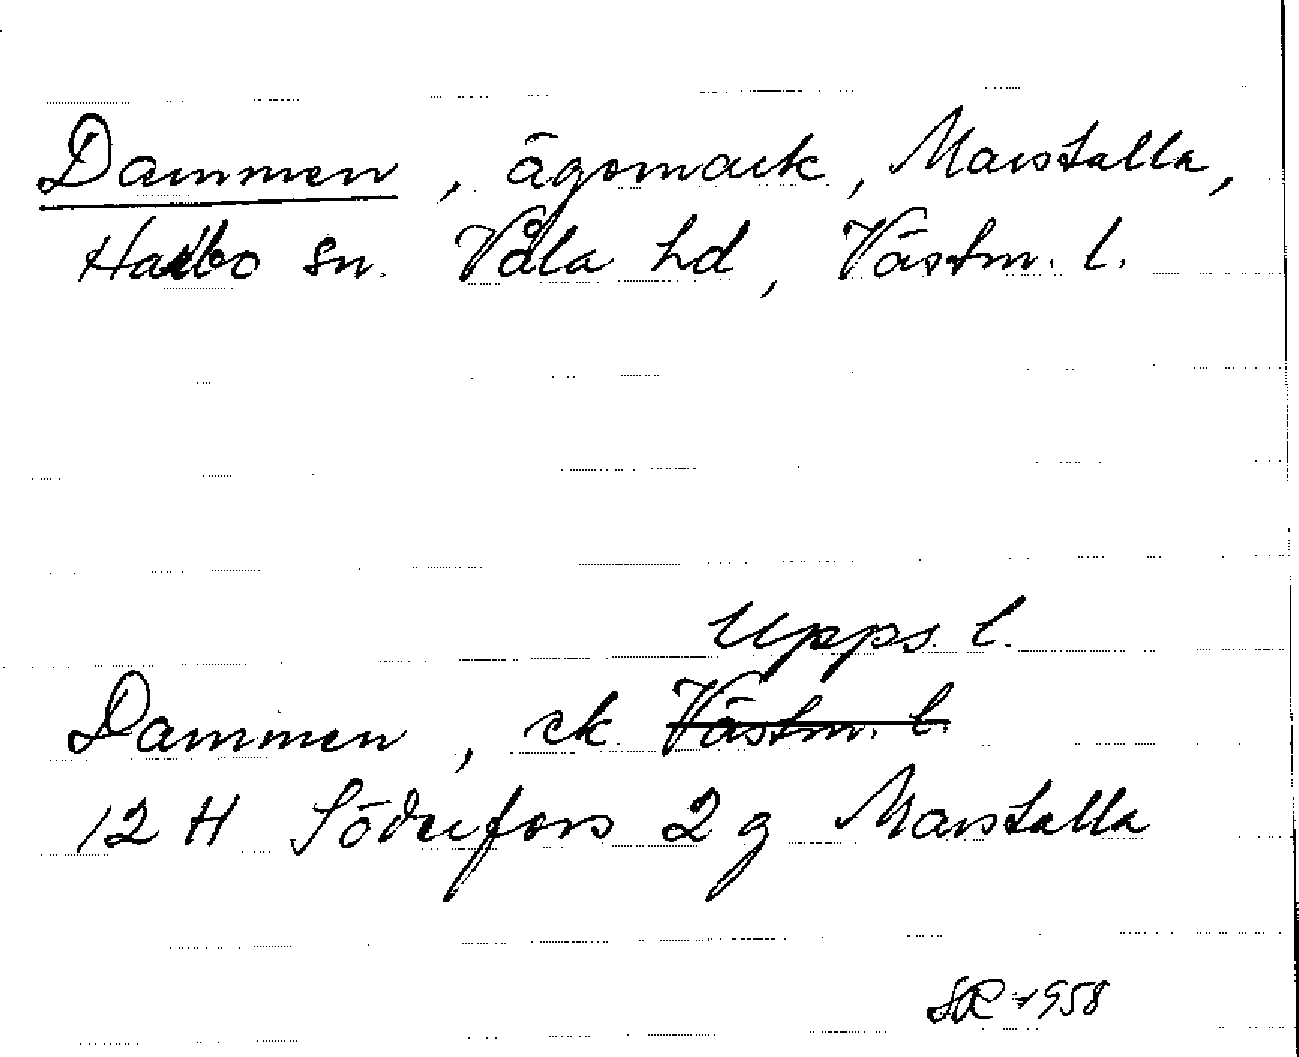 Dammen, ägomark, Marstalla,
Harbo sn. Våla hd, Västm. l.
Upps. l.
Dammen, ek. Västm. l.
12 H Söderfors 2 g Marstalla
SR 1958